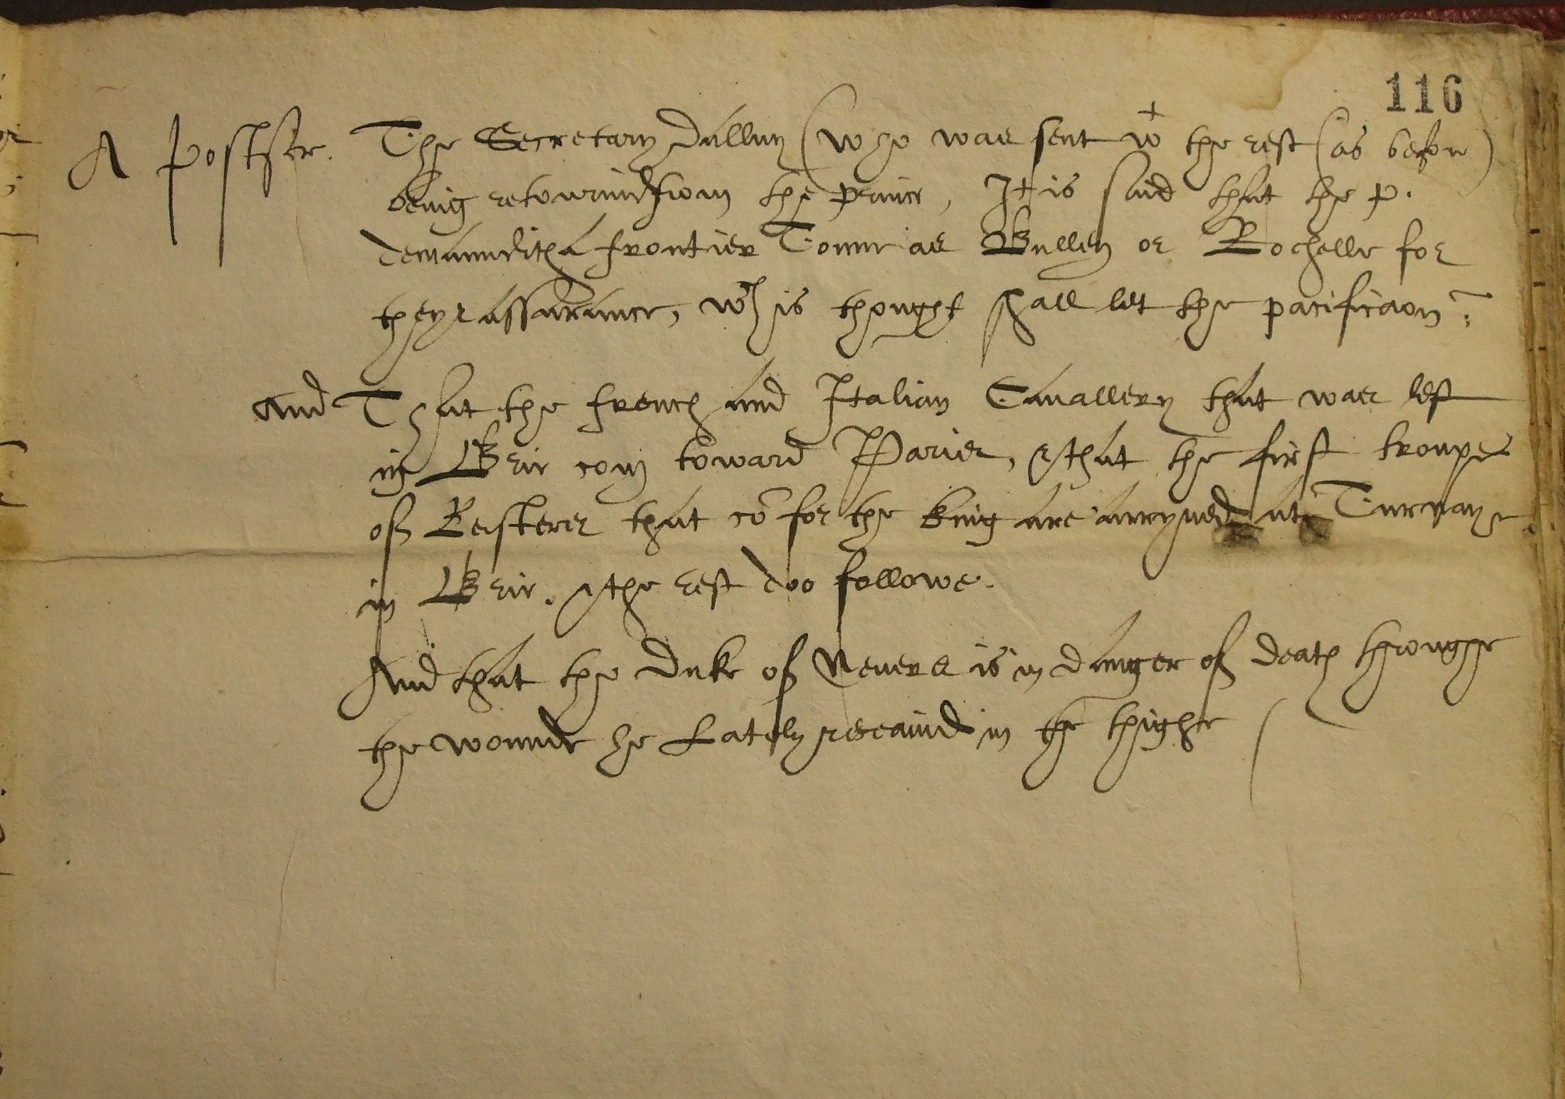 116
A postscr. The Secretary Dalluy (who was sent wt the rest (as before)
being retournid from the prince, It is said that the p.
demaundith a frontier Towne as Bullen or Rochelle for
theyr assurance, wch is thought shall let the pacificaon.
And That the french and Italian Cavallery that was left
in Brie com toward Paris, & that the first troupes
of Reisters that co for the king are arryved at Turnay
in Brie. & the rest doo followe.
And that the Duke of Nevers is in danger of death throughe
the wounde he Lately receaved in the thighe